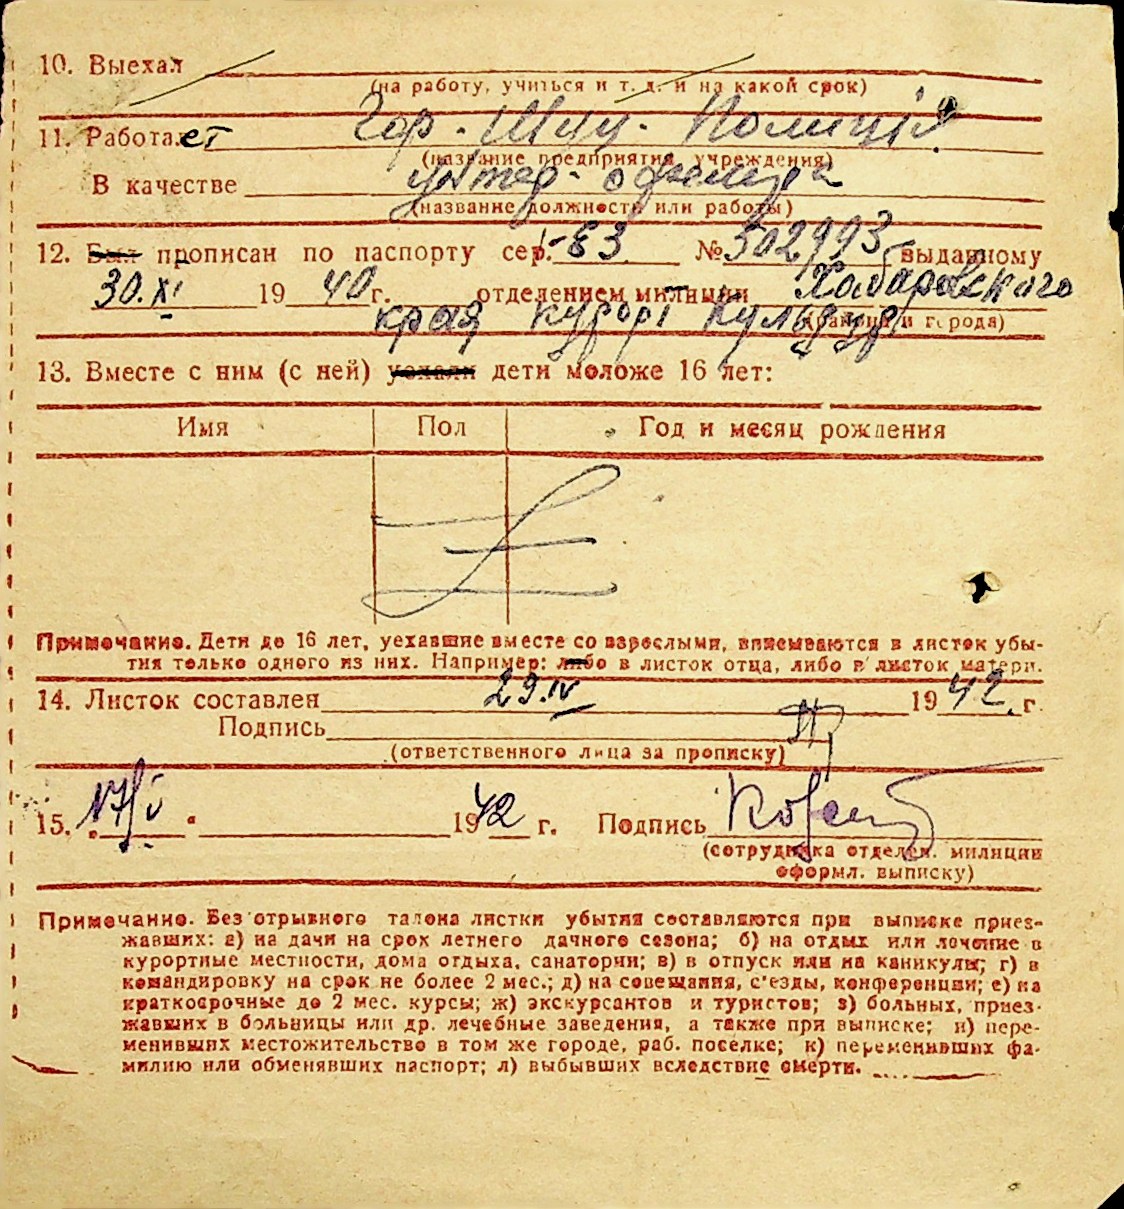 10. Выехал
(на работу, учиться и т. д. и на какой срок)
11. Работает Гор. Шуц. Полиція
(название предприятия, учреждения)
В качестве унтер-офицера
(название должности или работы)
12. Был прописан по паспорту сер. I-ЕЗ № 502993 выданному
30.XI 1940 г. отделением милиции Хабаровского
края курорт Кульдур
(района и города)
13. Вместе с ним (с ней) уехали дети моложе 16 лет:
Имя Пол Год и месяц рождения
Примечание. Дети до 16 лет, уехавшие вместе со взрослыми, вписываются в листок убы-
тия только одного из них. Например: либо в листок отца, либо в листок матери.
14. Листок составлен 29.IV 1942 г.
Подпись
(ответственного лица за прописку)
15. „17/V“ 1942 г. Подпись
(сотрудника отделен. милиции
оформл. выписку)
Примечание. Без отрывного талона листки убытия составляются при выписке приез-
жавших: а) на дачи на срок летнего дачного сезона; б) на отдых или лечение в
курортные местности, дома отдыха, санатории; в) в отпуск или на каникулы; г) в
командировку на срок не более 2 мес.; д) на совещания, с'езды, конференции; е) на
краткосрочные до 2 мес. курсы; ж) экскурсантов и туристов; з) больных, приез-
жавших в больницы или др. лечебные заведения, а также при выписке; и) пере-
менивших местожительство в том же городе, раб. поселке; к) переменивших фа-
милию или обменявших паспорт; л) выбывших вследствие смерти.